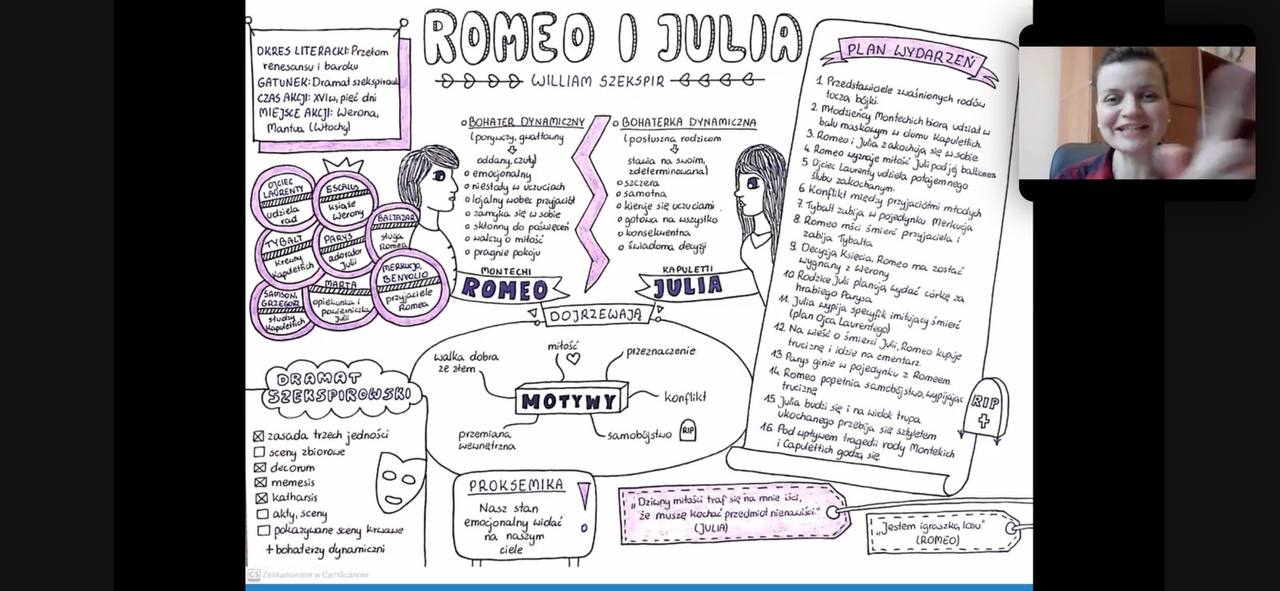 ROMEO I JULIA
WILLIAM SZEKSPIR
OKRES LITERACKI: Przełom
renesansu i baroku
GATUNEK: Dramat szekspirowski
CZAS AKCJI: XVI w, pięć dni
MIEJSCE AKCJI: Werona,
Mantua (Włochy)
OJCIEC
LAURENTY
udziela
rad
ESCALUS
książe
Werony
BALTAZAR
sługa
Romea
TYBALT
krewny
Kapulettich
PARYS
adorator
Julii
MERKUCJO,
BENVOLIO
przyjaciele
Romea
SAMSON,
GRZEGORZ
słudzy
Kapulettich
MARTA
opiekunka i
powierniczka
Julii
BOHATER DYNAMICZNY
(porywczy, gwałtowny
oddany, czuły)
emocjonalny
niestały w uczuciach
lojalny wobec przyjaciół
zamyka się w sobie
skłonny do poświęceń
walczy o miłość
pragnie pokoju
MONTECHI
ROMEO
BOHATERKA DYNAMICZNA
(posłuszna rodzicom
stawia na swoim,
zdeterminowana)
szczera
samotna
kieruje się uczuciami
gotowa na wszystko
konsekwentna
świadoma decyzji
KAPULETTI
JULIA
DOJRZEWAJĄ
walka dobra
ze złem
miłość
przeznaczenie
MOTYWY
konflikt
przemiana
wewnętrzna
samobójstwo
RIP
DRAMAT
SZEKSPIROWSKI
zasada trzech jedności
sceny zbiorowe
decorum
memesis
katharsis
akty, sceny
pokazywane sceny krwawe
+ bohaterzy dynamiczni
PROKSEMIKA
Nasz stan
emocjonalny widać
na naszym
ciele
PLAN WYDARZEŃ
1. Przedstawiciele zwaśnionych rodów
toczą bójki.
2. Młodzieńcy Montechich biorą udział w
balu maskowym w domu Kapulettich.
3. Romeo i Julia zakochują się w sobie
4. Romeo wyznaje miłość Julii pod jej balkonem
5. Ojciec Laurenty udziela potajemnego
ślubu zakochanym.
6. Konflikt między przyjaciółmi młodych
7. Tybalt zabija w pojedynku Merkucja
8. Romeo mści śmierć przyjaciela i
zabija Tybalta
9. Decyzja Księcia, Romeo ma zostać
wygnany z Werony
10. Rodzice Julii planują wydać córkę za
hrabiego Parysa
11. Julia wypija specyfik imitujący śmierć
(plan Ojca Laurentego)
12. Na wieść o śmierci Julii, Romeo kupuje
truciznę i idzie na cmentarz.
13 Parys ginie w pojedynku z Romeem.
14. Romeo popełnia samobójstwo, wypijając
truciznę
15. Julia budzi się i na widok trupa
ukochanego przebija się sztyletem
16. Pod wpływem tragedii rody Montekich
i Capulettich godzą się
RIP
„Dziwny miłości traf się na mnie iści,
że muszę kochać przedmiot nienawiści."
(JULIA)
„Jestem igraszką losu"
(ROMEO)
CS Zeskanowane w CamScanner